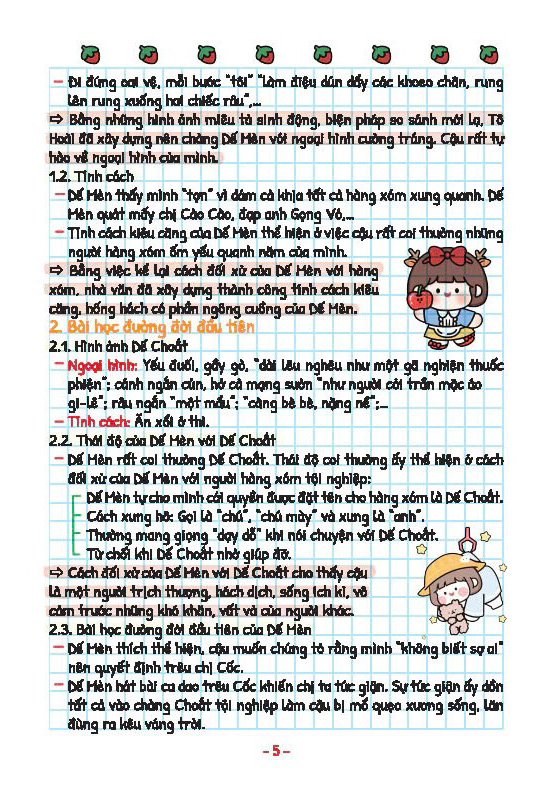 – Đi đứng oai vệ, mỗi bước "tôi" "làm điệu dún dẩy các khoeo chân, rung
lên rung xuống hai chiếc râu",...
⇨ Bằng những hình ảnh miêu tả sinh động, biện pháp so sánh mới lạ, Tô
Hoài đã xây dựng nên chàng Dế Mèn với ngoại hình cường tráng. Cậu rất tự
hào về ngoại hình của mình.
1.2. Tính cách
– Dế Mèn thấy mình "tợn" vì dám cà khịa tất cả hàng xóm xung quanh. Dế
Mèn quát mấy chị Cào Cào, đạp anh Gọng Vó,...
– Tính cách kiêu căng của Dế Mèn thể hiện ở việc cậu rất coi thường những
người hàng xóm ốm yếu quanh năm của mình.
⇨ Bằng việc kể lại cách đối xử của Dế Mèn với hàng
xóm, nhà văn đã xây dựng thành công tính cách kiêu
căng, hống hách có phần ngông cuồng của Dế Mèn.
2. Bài học đường đời đầu tiên
2.1. Hình ảnh Dế Choắt
– Ngoại hình: Yếu đuối, gầy gò, "dài lêu nghêu như một gã nghiện thuốc
phiện"; cánh ngắn củn, hở cả mạng sườn "như người cởi trần mặc áo
gi-lê"; râu ngắn "một mẩu"; "càng bè bè, nặng nề";...
– Tính cách: Ăn xổi ở thì.
2.2. Thái độ của Dế Mèn với Dế Choắt
– Dế Mèn rất coi thường Dế Choắt. Thái độ coi thường ấy thể hiện ở cách
đối xử của Dế Mèn với người hàng xóm tội nghiệp:
Dế Mèn tự cho mình cái quyền được đặt tên cho hàng xóm là Dế Choắt.
Cách xưng hô: Gọi là "chú", "chú mày" và xưng là "anh".
Thường mang giọng "dạy dỗ" khi nói chuyện với Dế Choắt.
Từ chối khi Dế Choắt nhờ giúp đỡ.
⇨ Cách đối xử của Dế Mèn với Dế Choắt cho thấy cậu
là một người trịch thượng, hách dịch, sống ích kỉ, vô
cảm trước những khó khăn, vất vả của người khác.
2.3. Bài học đường đời đầu tiên của Dế Mèn
– Dế Mèn thích thể hiện, cậu muốn chứng tỏ rằng mình "không biết sợ ai"
nên quyết định trêu chị Cốc.
– Dế Mèn hát bài ca dao trêu Cốc khiến chị ta tức giận. Sự tức giận ấy dồn
tất cả vào chàng Choắt tội nghiệp làm cậu bị mổ quẹo xương sống, lăn
đùng ra kêu váng trời.
– 5 –